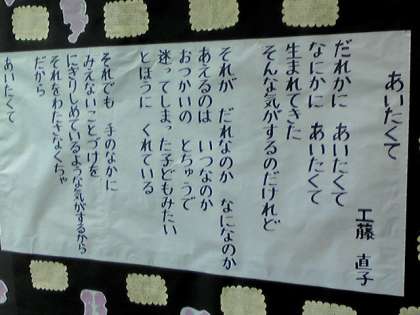 あいたくて
工藤 直子
だれかに あいたくて
なにかに あいたくて
生まれてきた
そんな気がするのだけれど
それが だれなのか なになのか
あえるのは いつなのか
おつかいの とちゅうで
迷ってしまった子どもみたい
とほうに くれている
それでも 手のなかに
みえないことづけを
にぎりしめているような気がするから
それをわたさなくちゃ
だから
あいたくて